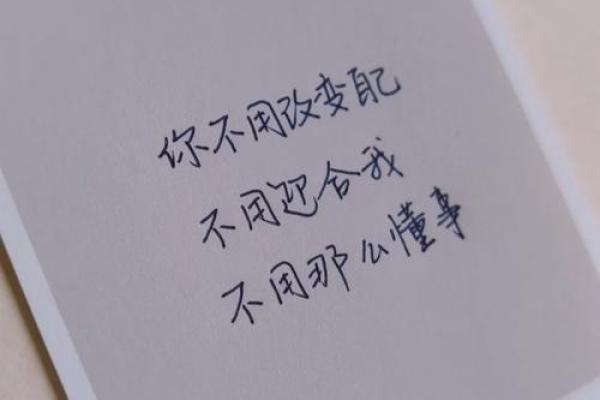 你不用改变自己
不用迎合我
不用那么懂事